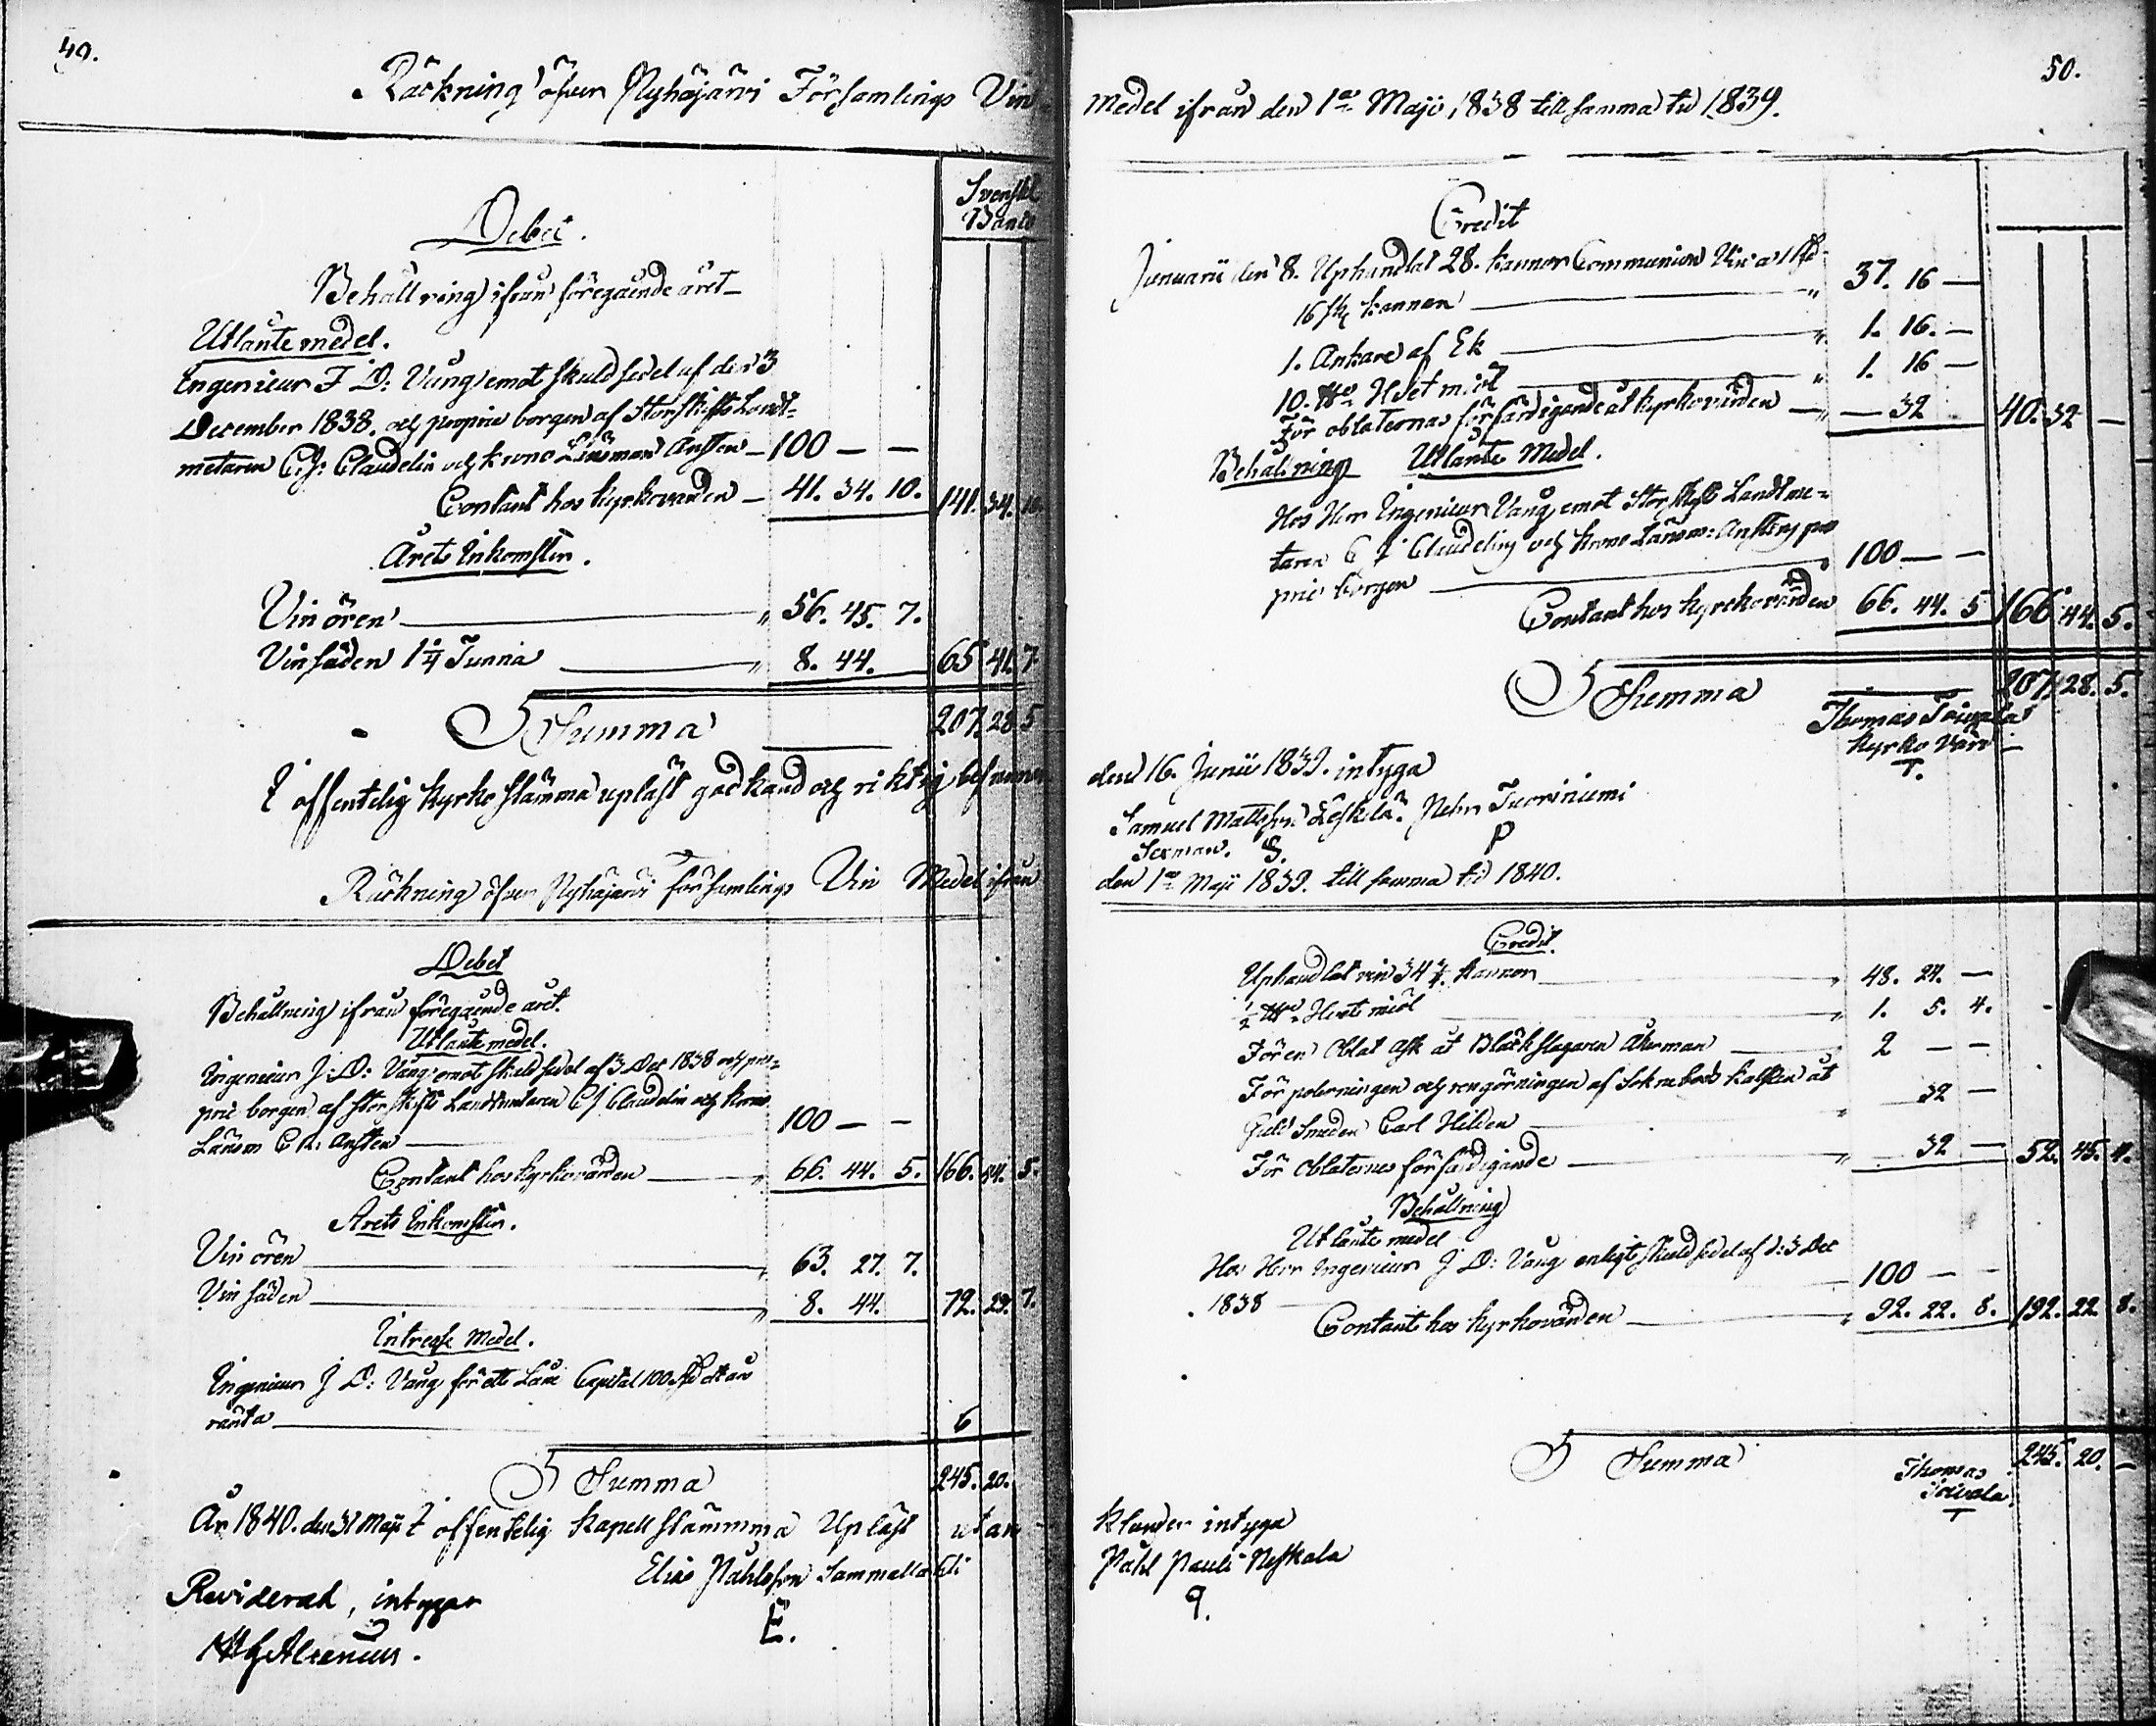 49.
Räckning öfver Pyhäjärvi Församlings Vin
Svenskt
Banco
Debet.
Behållning ifrån föregående året
Utlånte medel.
Ingenieur J D: Vång emot skuldsedel af den 3
December 1838. och proprie borgen af Storskifts Landt=
metaren C. J: Claudelin och krono Länsman Ansten 100 — —
Contant hos kyrkovärden 41. 34. 10. 141. 34. 10.
Årets Inkomster.
Vin ören 56. 45. 7.
Vin säden 1¼ Tunna 8. 44. 65 41. 7
Summa 207. 28 5
I offentelig kyrko stämma upläst godkänd och riktig befunnen
Räckning öfver Pyhäjärvi församlings Vin Medel ifrån
Debet
Behållning ifrån föregående året.
Utlånte medel.
Ingenieur J. D: Vång emot skuldsedel af 3 Dec 1838 och pro=
prie borgen af storskifts Landtmetaren C J Claudelin och krono
Länsm C R: Ansten 100 — —
Contant hos kyrkovärden 66. 44. 5. 166. 44. 5.
Årets Inkomster.
Vin ören 63. 27. 7.
Vin säden 8. 44. 72. 23. 7.
Intresse Medel.
Ingenieur J D: Vång för ett Låne Capital 100 Rd ett års
ränta 6
Summa 245. 20.
År 1840. den 31 Maji i offentelig kapell stämmma Upläst utan
Elias Påhlsson Sammallahti
E.
Reviderad, intygar
Alcenius.
50.
medel ifrån den 1ta Maji 1838 till samma tid 1839.
Credit
Januarii den 8. Uphandlat 28. kannor Communion Vin a 1 Rd
16 sk kannan 37. 16 —
1. Ankare af Ek 1. 16. —
10. Hvetmiöl 1. 16 —
För oblaternas förfärdigande åt kyrkovärden — 32 40. 32 —
Behållning Utlånte Medel.
Hos Herr Ingenieur Vång emot Storskifts Landtme=
taren C J Claudelin och krono Länsm: Anstens pro
prie borgen 100 — —
Contant hos kyrkovärden 66. 44. 5 166 44. 5.
Summa 207. 28. 5.
Thomas Toivola
kyrko Värd
T.
den 16. Junii 1839. intyga
Samuel Mattsson Leskelä. Petter Tuoriniemi
Sexman. S. P
den 1ta Maji 1839. till samma tid 1840.
Credit.
Uphandlat vin 34 ¾. kannor 48. 24. —
½ Hvete miöl 1. 5. 4.
För en Oblat Ask åt Bläckslagaren Åkerman 2 — —
För polerningen och rengörningen af Socknebods kalken åt
Guld Smeden Carl Hilden 32 —
För Oblaternes förfärdigande 32 — 52. 45. 4.
Behållning
Utlånte medel
Hos Herr Ingenieur J D: Vång enligt skuldsedel af d: 3 Dec
1838 100 — —
Contant hos kyrkovärden 92. 22. 8. 192. 22. 8.
Summa 245. 20. —
Thomas
Toivola
T
klander intyga
Påhl Pauli Neskala
P.